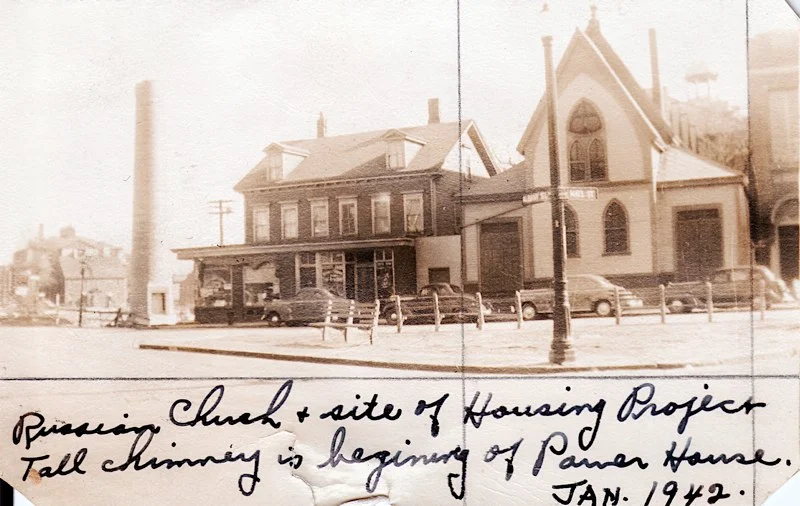 Russian Chuch + site of Housing Project
Tall chimney is begining of Power House.
JAN. 1942.